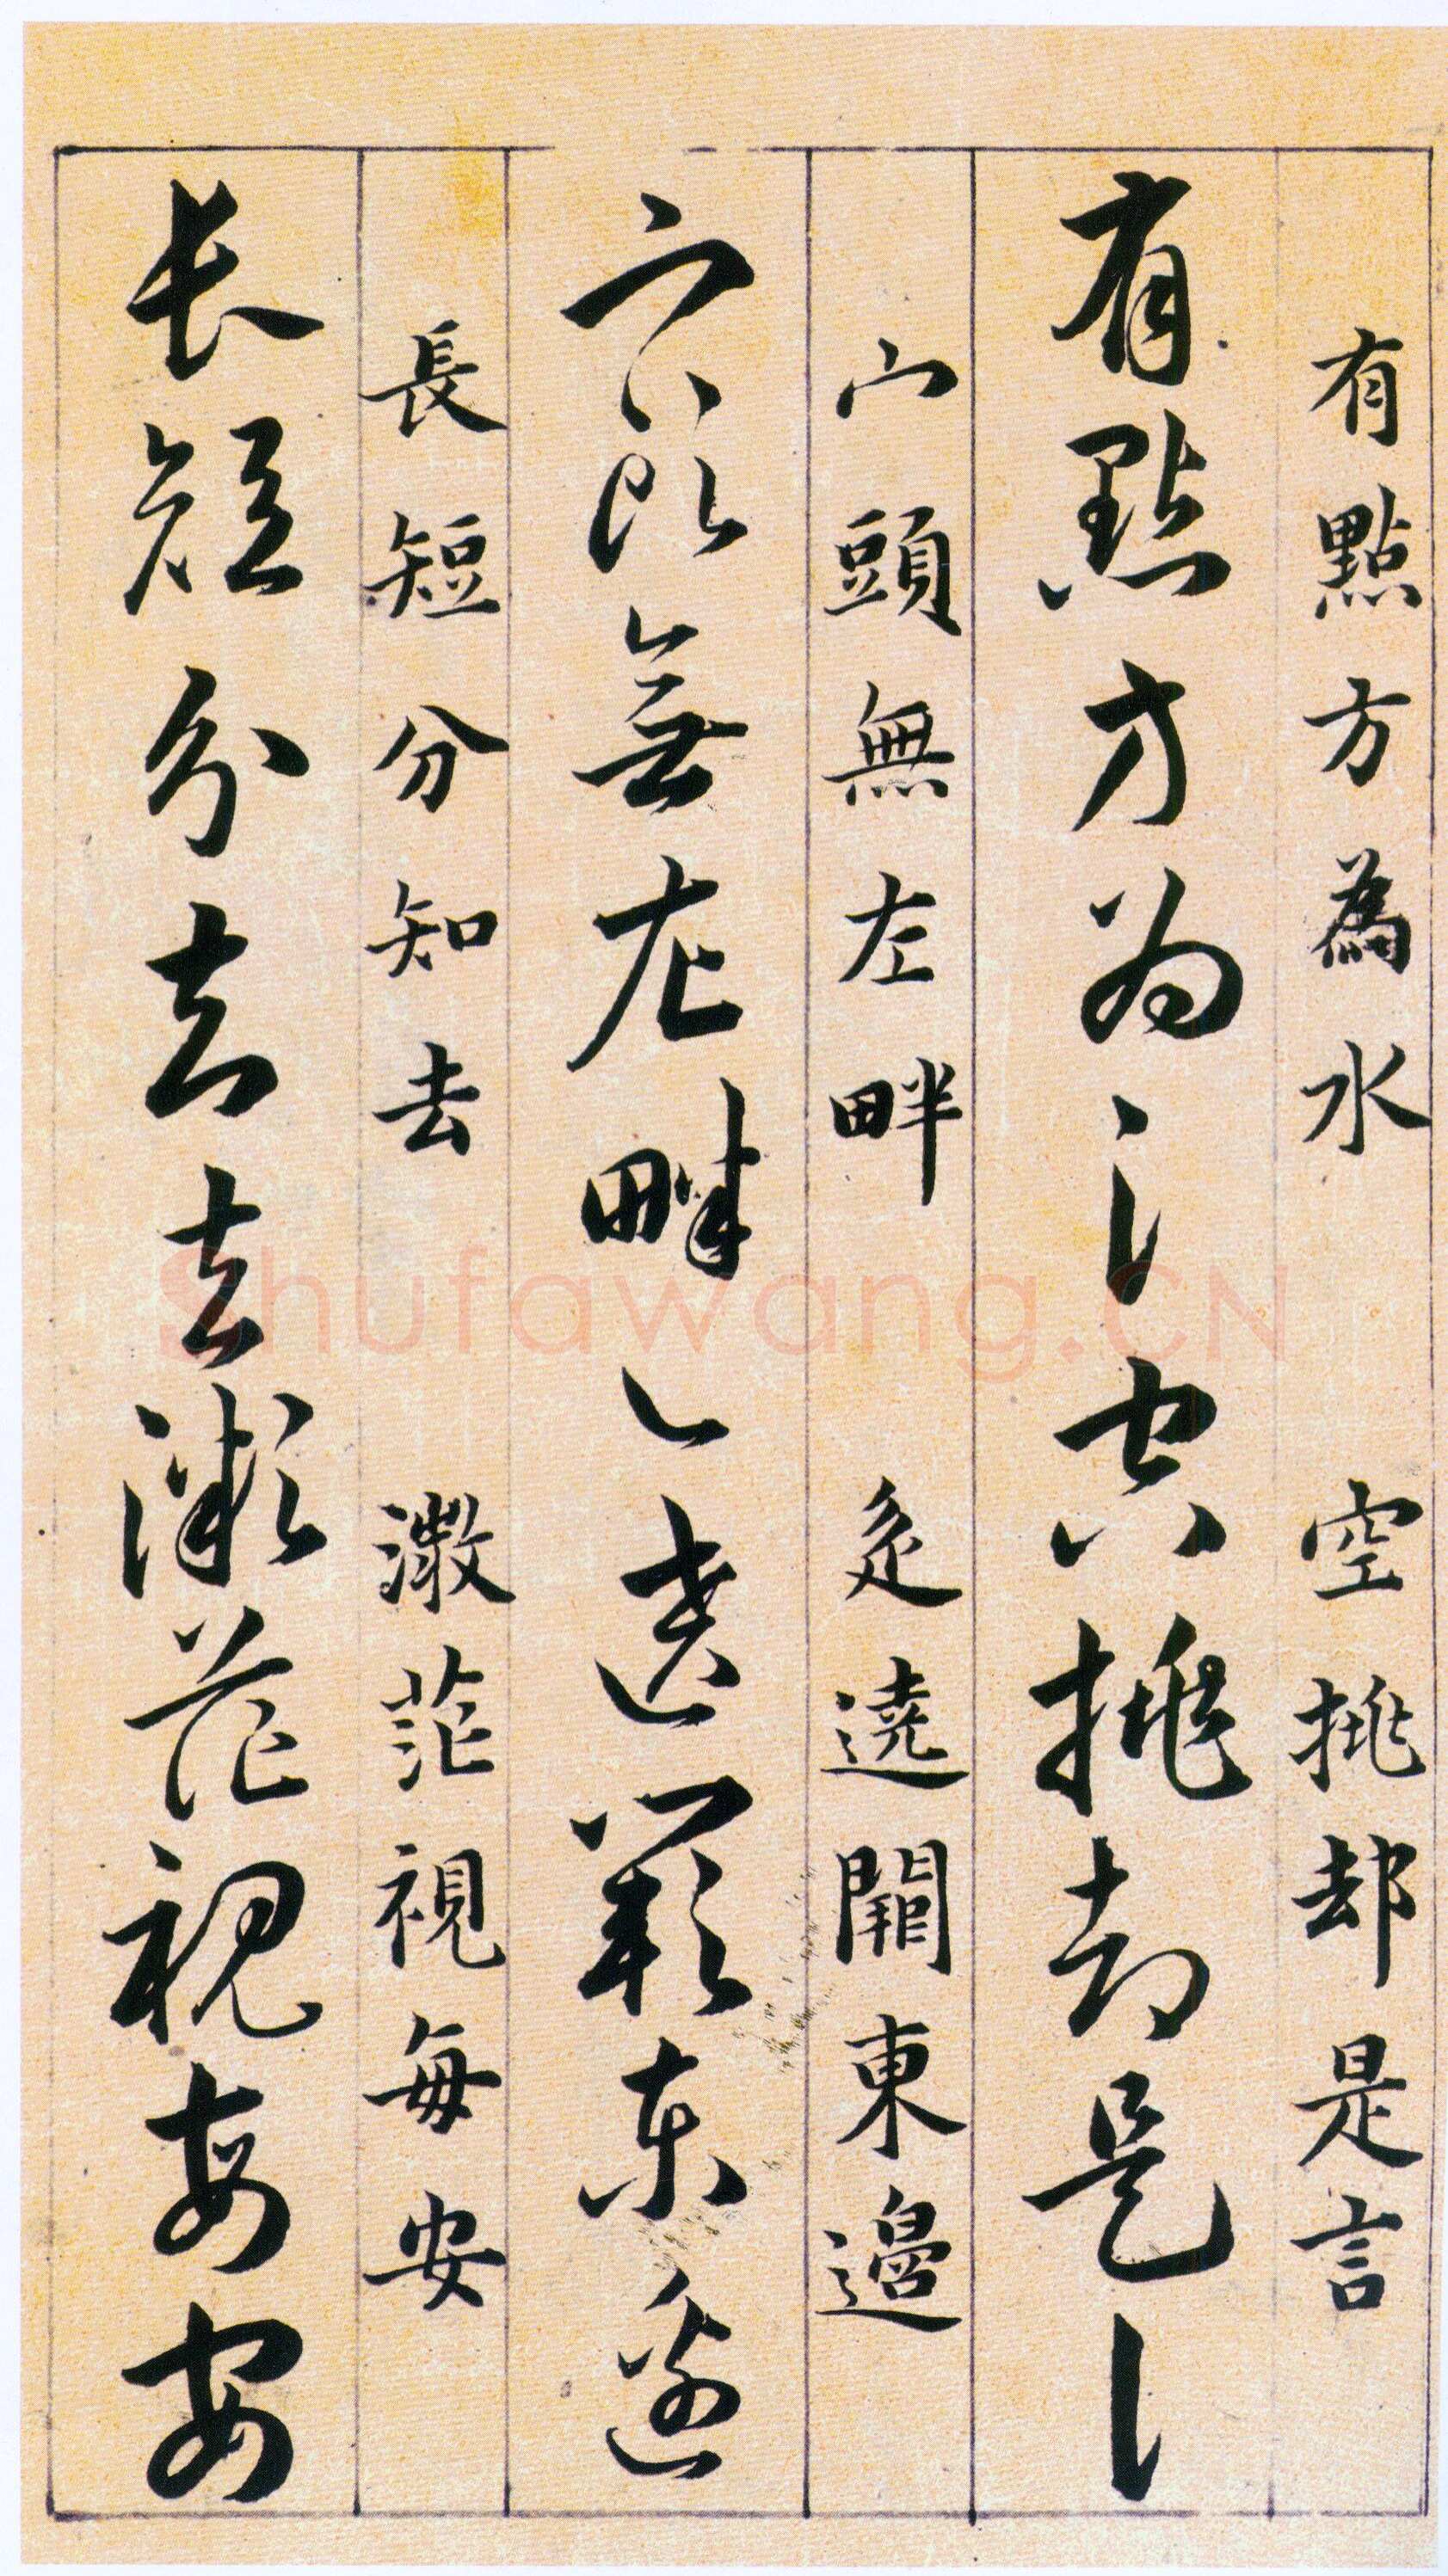 有點方為水 空挑却是言
有點方為氵空挑却是讠
宀頭無左畔 辵遶闕東邊
宀頭無左畔辶遶闕東邊
長短分知去 溦茫視每安
長短分知去溦茫視每安
Shufawang.CN